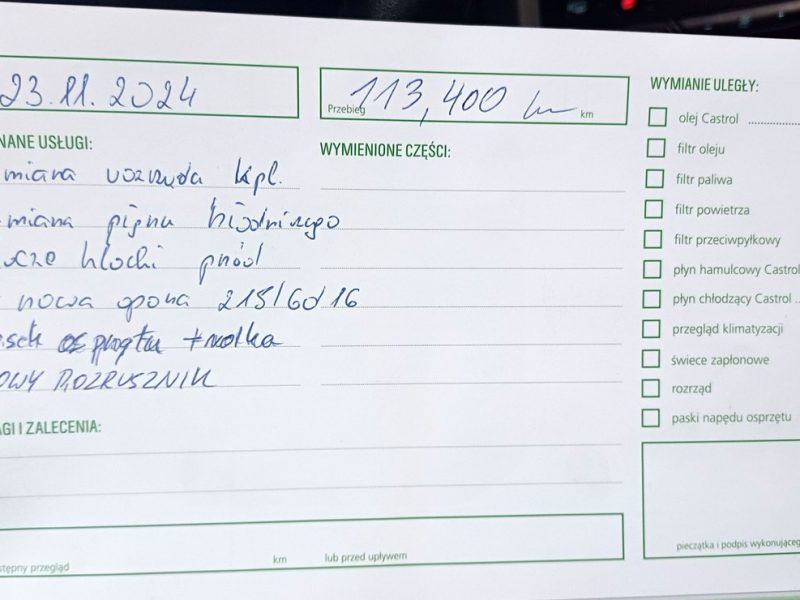 23.11.2024
Przebieg 113,400 km km
WYMIANIE ULEGŁY:
olej Castrol
filtr oleju
filtr paliwa
filtr powietrza
filtr przeciwpyłkowy
płyn hamulcowy Castrol
płyn chłodzący Castrol
przegląd klimatyzacji
świece zapłonowe
rozrząd
paski napędu osprzętu
NANE USŁUGI:
miana rozrządu kpl.
miana płynu
klocki przód
nowa opona 215/60/16
sek osprzętu + rolka
OWY ROZRUSZNIK
WYMIENIONE CZĘŚCI:
AGI I ZALECENIA:
stępny przegląd km lub przed upływem
pieczątka i podpis wykonująceg